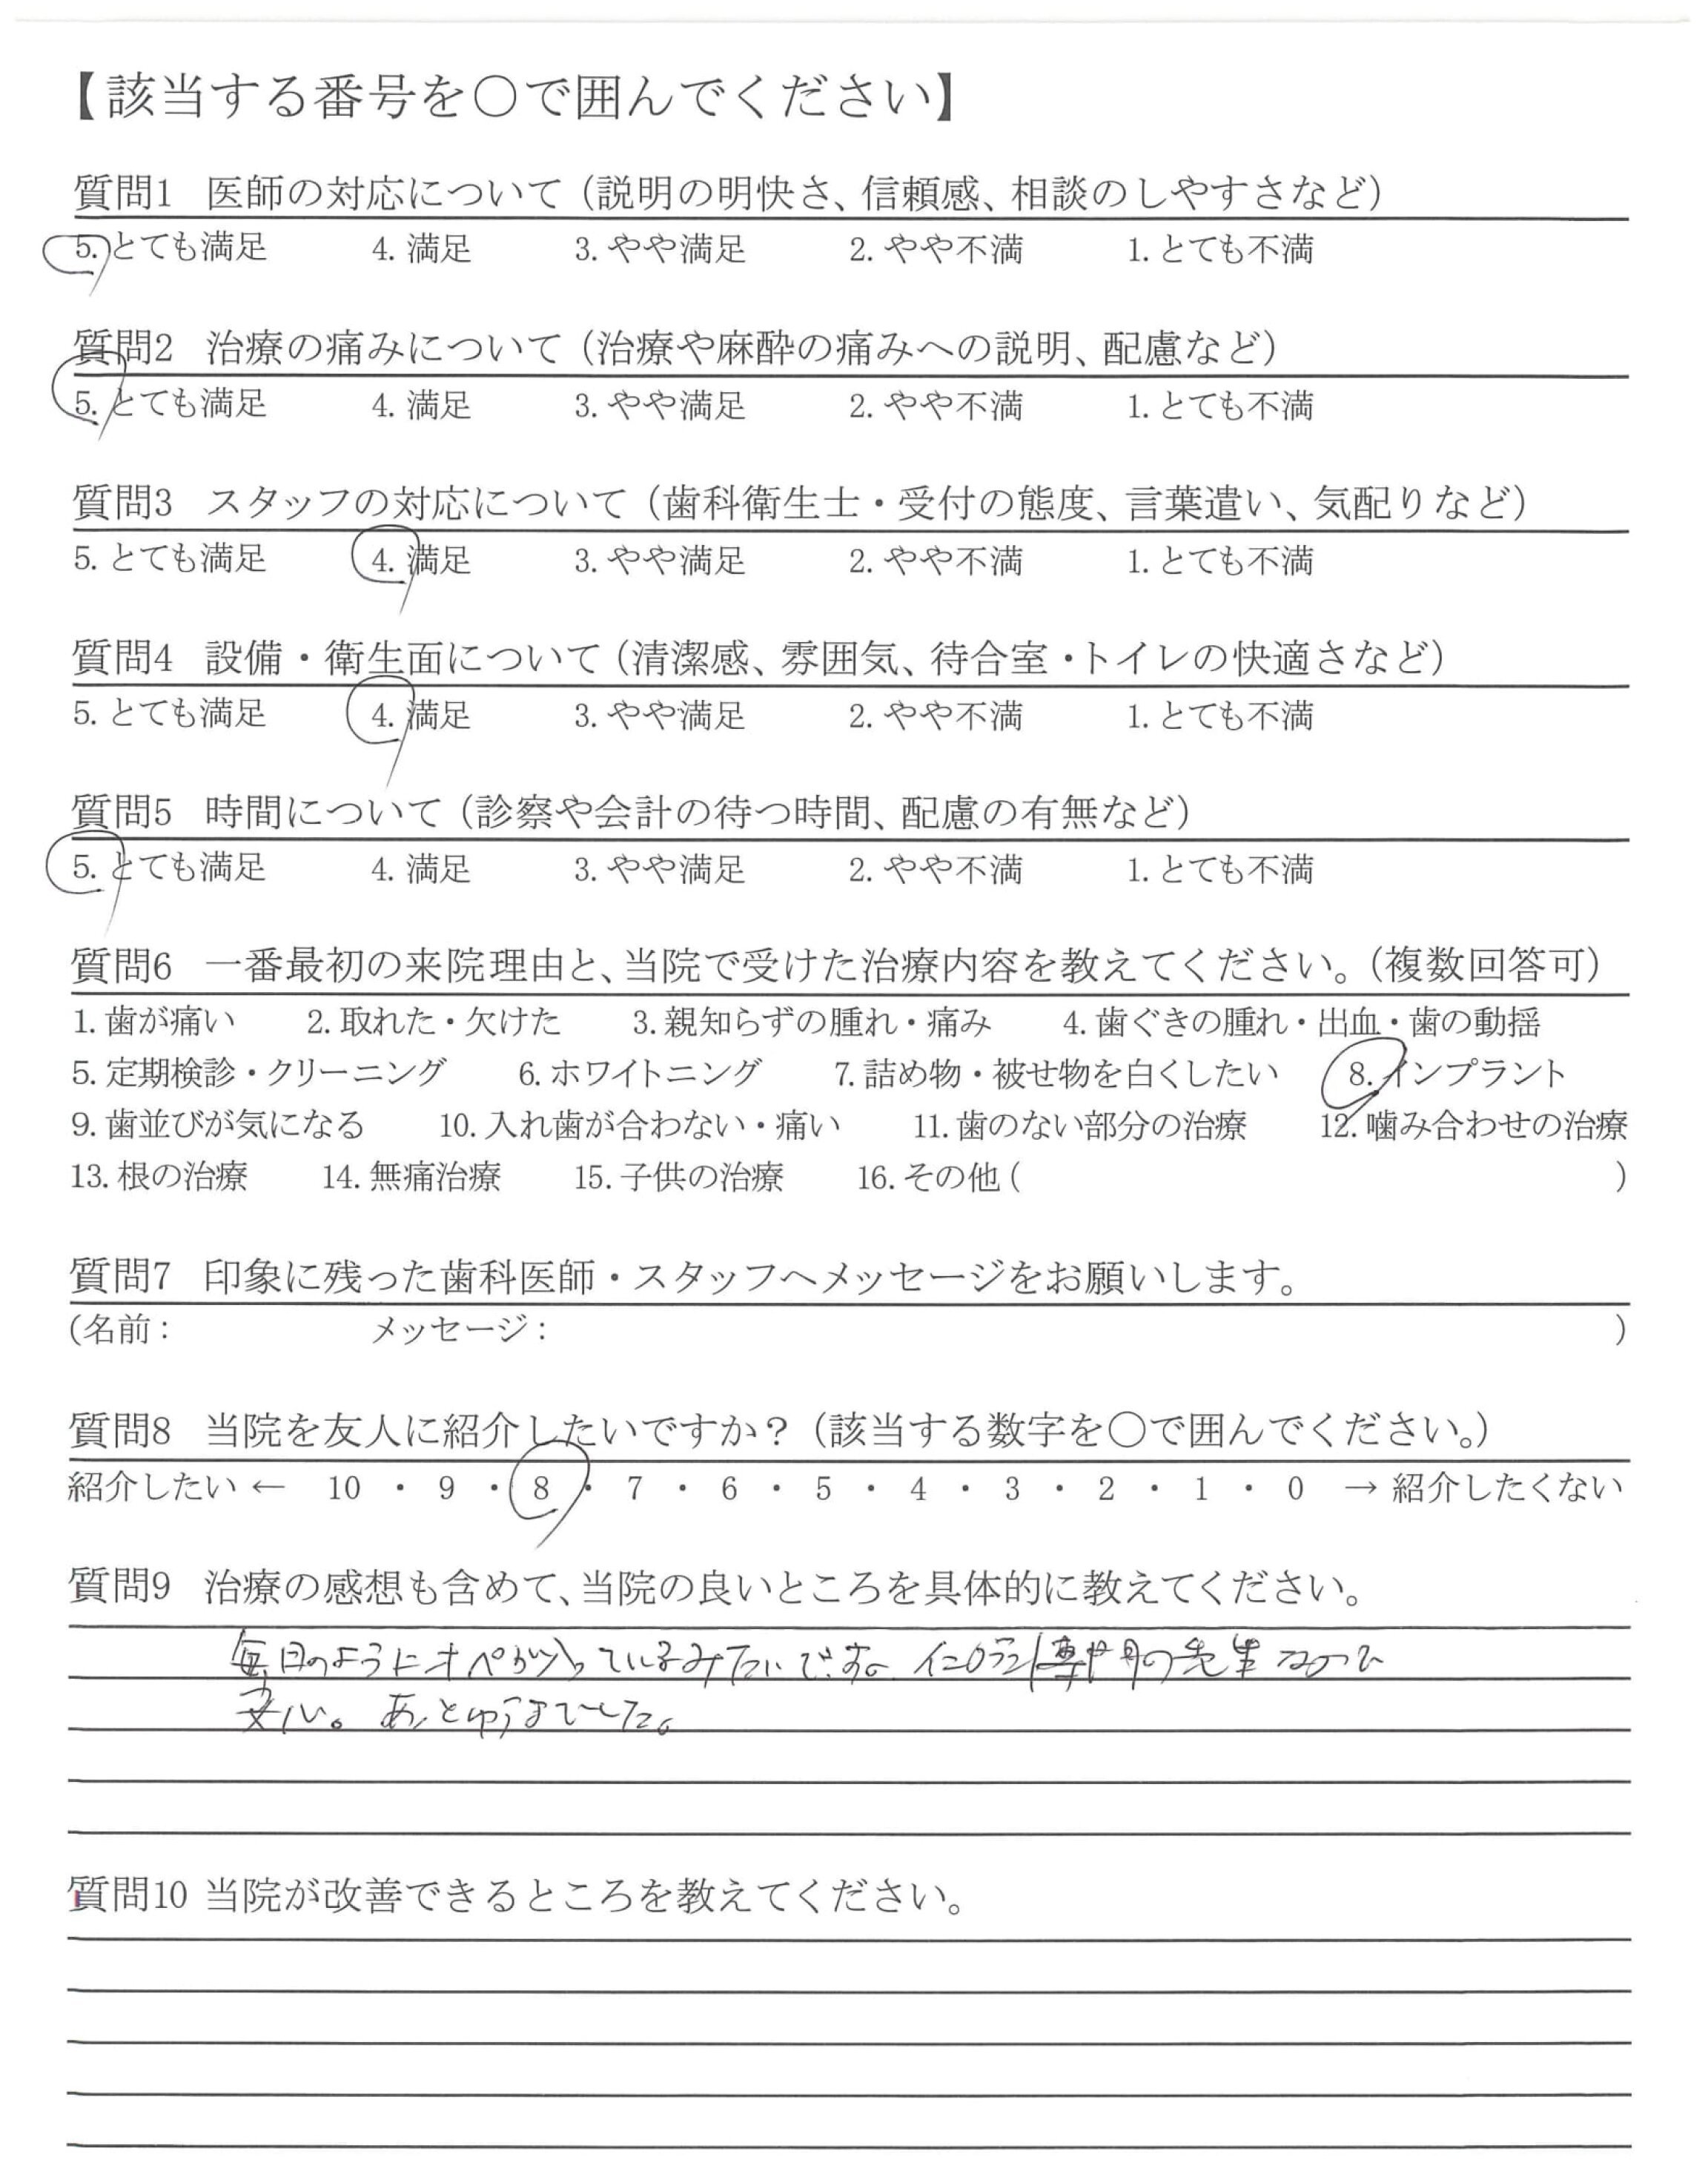 【該当する番号を〇で囲んでください】
質問1 医師の対応について（説明の明快さ、信頼感、相談のしやすさなど）
5. とても満足 4. 満足 3. やや満足 2. やや不満 1. とても不満
質問2 治療の痛みについて（治療や麻酔の痛みへの説明、配慮など）
5. とても満足 4. 満足 3. やや満足 2. やや不満 1. とても不満
質問3 スタッフの対応について（歯科衛生士・受付の態度、言葉遣い、気配りなど）
5. とても満足 4. 満足 3. やや満足 2. やや不満 1. とても不満
質問4 設備・衛生面について（清潔感、雰囲気、待合室・トイレの快適さなど）
5. とても満足 4. 満足 3. やや満足 2. やや不満 1. とても不満
質問5 時間について（診察や会計の待つ時間、配慮の有無など）
5. とても満足 4. 満足 3. やや満足 2. やや不満 1. とても不満
質問6 一番最初の来院理由と、当院で受けた治療内容を教えてください。（複数回答可）
1. 歯が痛い 2. 取れた・欠けた 3. 親知らずの腫れ・痛み 4. 歯ぐきの腫れ・出血・歯の動揺
5. 定期検診・クリーニング 6. ホワイトニング 7. 詰め物・被せ物を白くしたい 8. インプラント
9. 歯並びが気になる 10. 入れ歯が合わない・痛い 11. 歯のない部分の治療 12. 噛み合わせの治療
13. 根の治療 14. 無痛治療 15. 子供の治療 16. その他（ ）
質問7 印象に残った歯科医師・スタッフへメッセージをお願いします。
（名前： メッセージ： ）
質問8 当院を友人に紹介したいですか？（該当する数字を〇で囲んでください。）
紹介したい ← 10 ・ 9 ・ 8 ・ 7 ・ 6 ・ 5 ・ 4 ・ 3 ・ 2 ・ 1 ・ 0 → 紹介したくない
質問9 治療の感想も含めて、当院の良いところを具体的に教えてください。
毎日のようにオペが入っているみたいです。インプラント専門の先生なので
安心。あっとゆうまでした。
質問10 当院が改善できるところを教えてください。